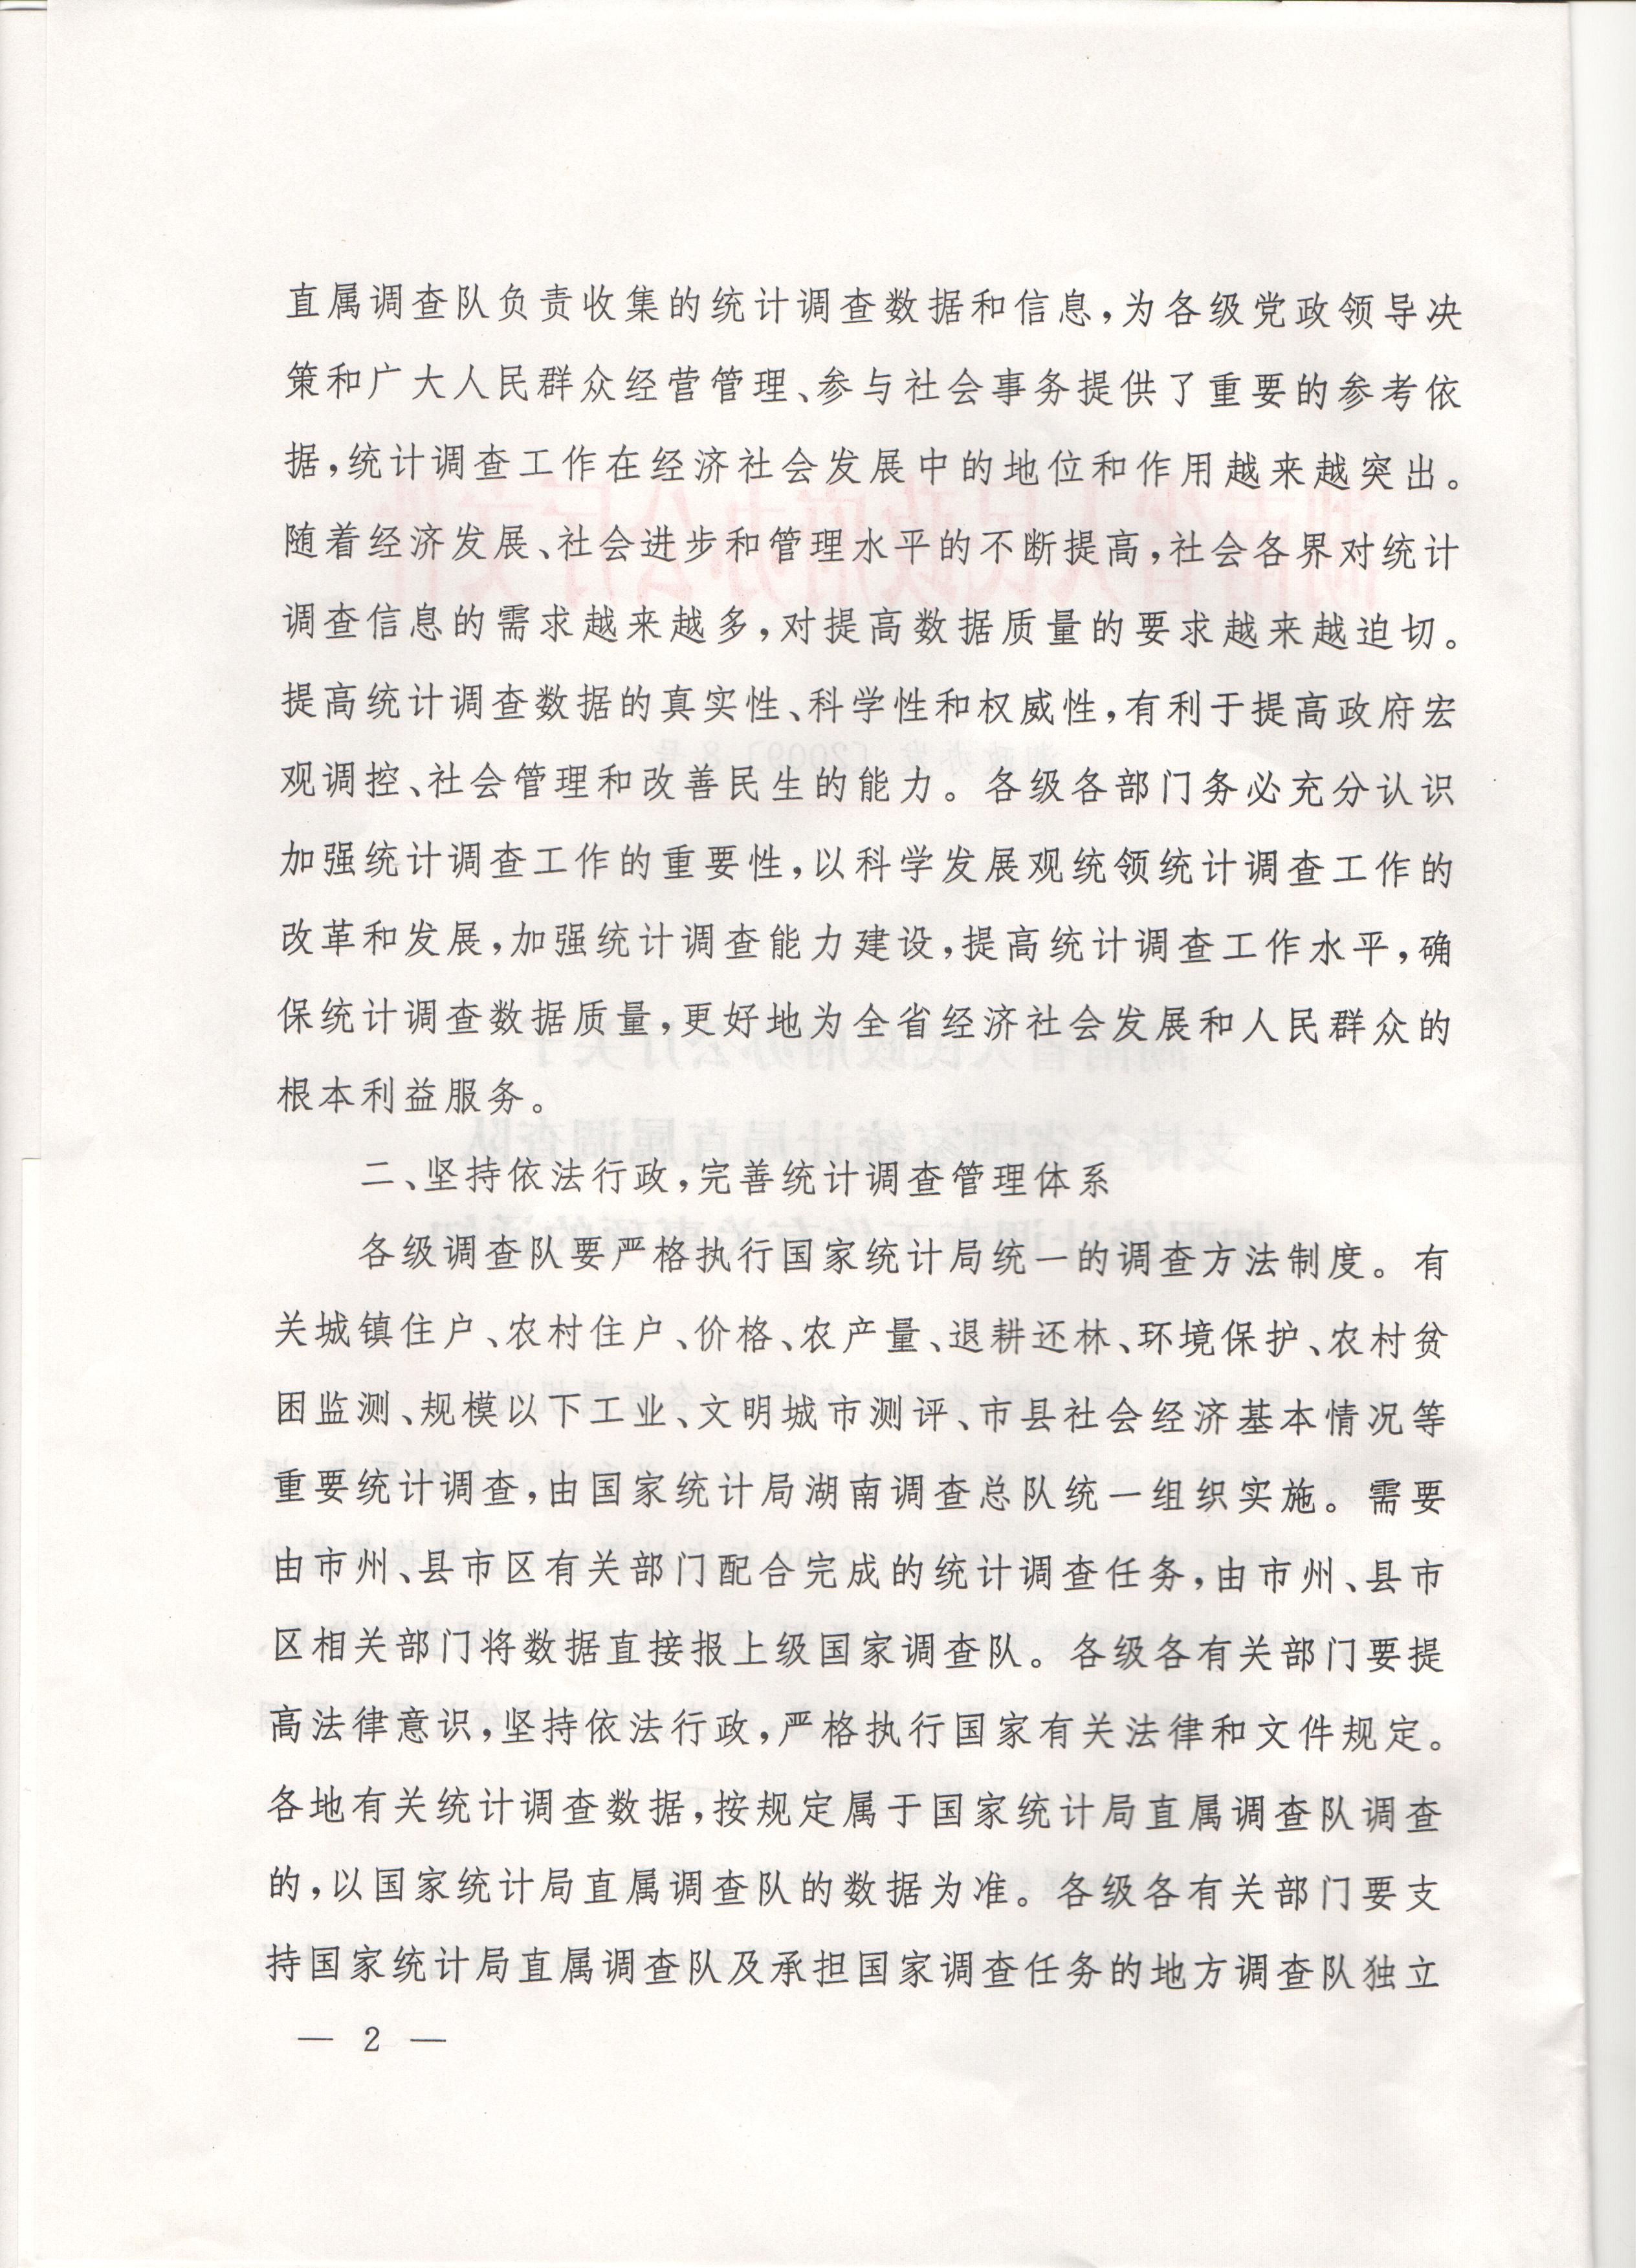 直属调查队负责收集的统计调查数据和信息,为各级党政领导决
策和广大人民群众经营管理、参与社会事务提供了重要的参考依
据,统计调查工作在经济社会发展中的地位和作用越来越突出。
随着经济发展、社会进步和管理水平的不断提高,社会各界对统计
调查信息的需求越来越多,对提高数据质量的要求越来越迫切。
提高统计调查数据的真实性、科学性和权威性,有利于提高政府宏
观调控、社会管理和改善民生的能力。各级各部门务必充分认识
加强统计调查工作的重要性,以科学发展观统领统计调查工作的
改革和发展,加强统计调查能力建设,提高统计调查工作水平,确
保统计调查数据质量,更好地为全省经济社会发展和人民群众的
根本利益服务。
二、坚持依法行政,完善统计调查管理体系
各级调查队要严格执行国家统计局统一的调查方法制度。有
关城镇住户、农村住户、价格、农产量、退耕还林、环境保护、农村贫
困监测、规模以下工业、文明城市测评、市县社会经济基本情况等
重要统计调查,由国家统计局湖南调查总队统一组织实施。需要
由市州、县市区有关部门配合完成的统计调查任务,由市州、县市
区相关部门将数据直接报上级国家调查队。各级各有关部门要提
高法律意识,坚持依法行政,严格执行国家有关法律和文件规定。
各地有关统计调查数据,按规定属于国家统计局直属调查队调查
的,以国家统计局直属调查队的数据为准。各级各有关部门要支
持国家统计局直属调查队及承担国家调查任务的地方调查队独立
— 2 —